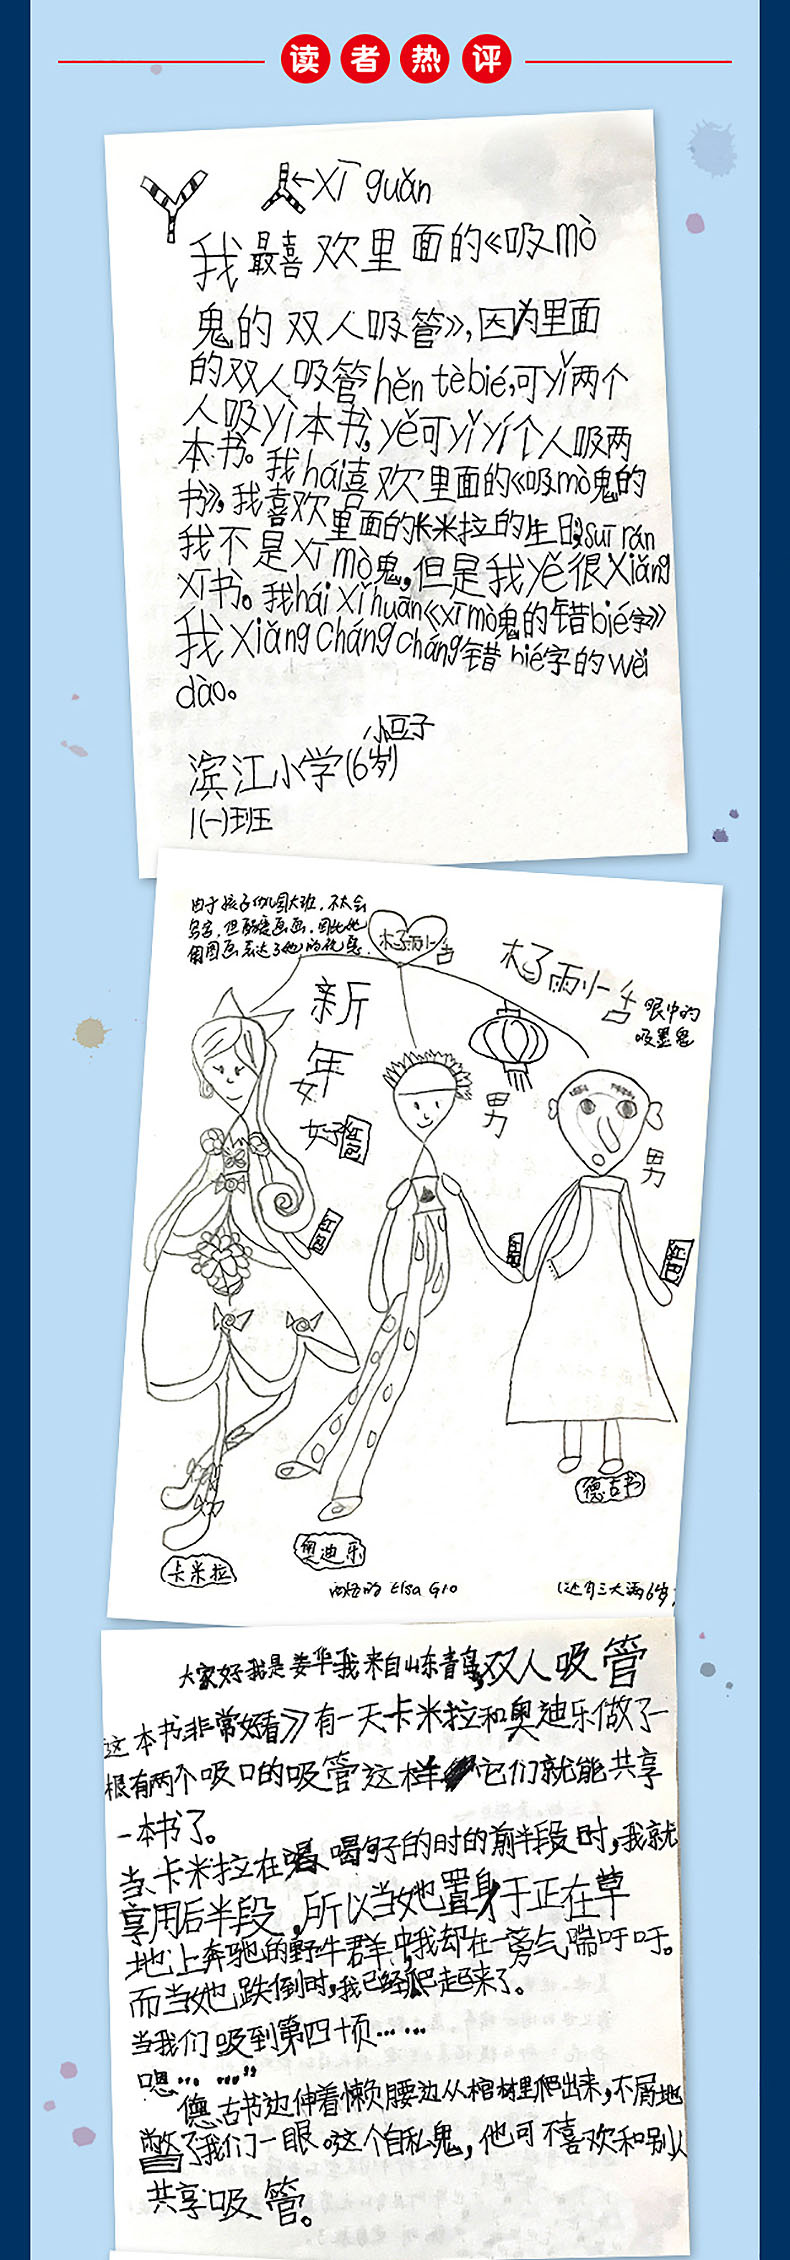 读者热评
←xī guǎn
我最喜欢里面的《吸mò
鬼的双人吸管》,因为里面
的双人吸管hěn tèbié,可yǐ两个
人吸yì本书,yě可yǐ yí个人吸两
本书。我hái喜欢里面的《吸mò鬼的
书》,我喜欢里面的卡米拉的生日,suī rán
我不是xī mò鬼,但是我yě很xiǎng
xī书。我hái xǐhuān《xī mò鬼的错bié字》
我xiǎng cháng cháng错bié字的wèi
dào。
小豆子
滨江小学(6岁)
1(一)班
由于孩子幼儿园大班,不太会
写字,但酷爱画画,因此她
用图画表达了她的祝愿.
新
年
好
红包
眼中的
吸墨鬼
男
男
红包
红包
红包
德古书
奥迪乐
卡米拉
(还有三天满6岁)
大家好我是姜华我来自山东青岛,双人吸管
这本书非常好看》有一天卡米拉和奥迪乐做了一
根有两个吸口的吸管这样它们就能共享
一本书了。
当卡米拉在喝喝句子的时的前半段时,我就
享用后半段,所以当她置身于正在草
地上奔驰的野牛群中,我却在一旁气喘吁吁。
而当她跌倒时,我已经爬起来了。
当我们吸到第四十页……
嗯……"
德古书边伸着懒腰边从棺材里爬出来,不屑地
瞥了我们一眼。这个自私鬼,他可不喜欢和别人
共享吸管。